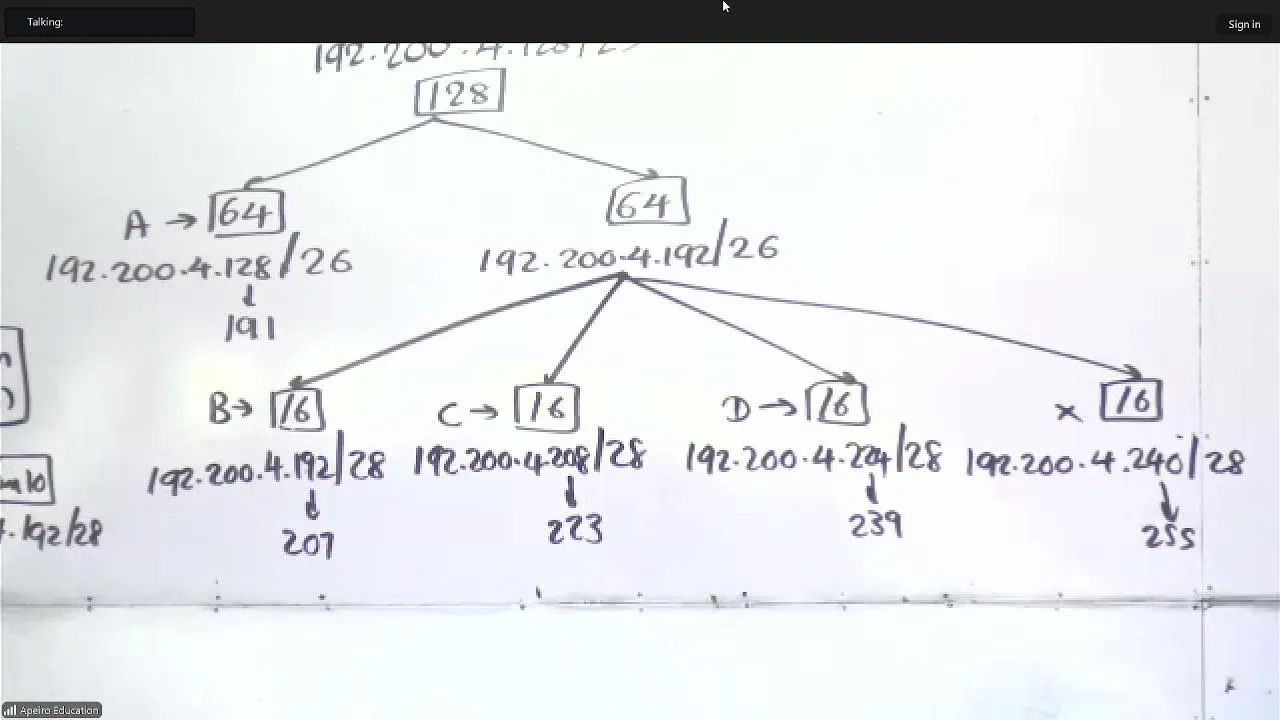 Talking:
Sign in
192.200.4.128/25
128
A → 64
64
192.200.4.128/26
192.200.4.192/26
191
B→ 16
C → 16
D → 16
x 16
192.200.4.192/28
192.200.4.208/28
192.200.4.224/28
192.200.4.240/28
.192/28
207
223
239
255
Apeiro Education